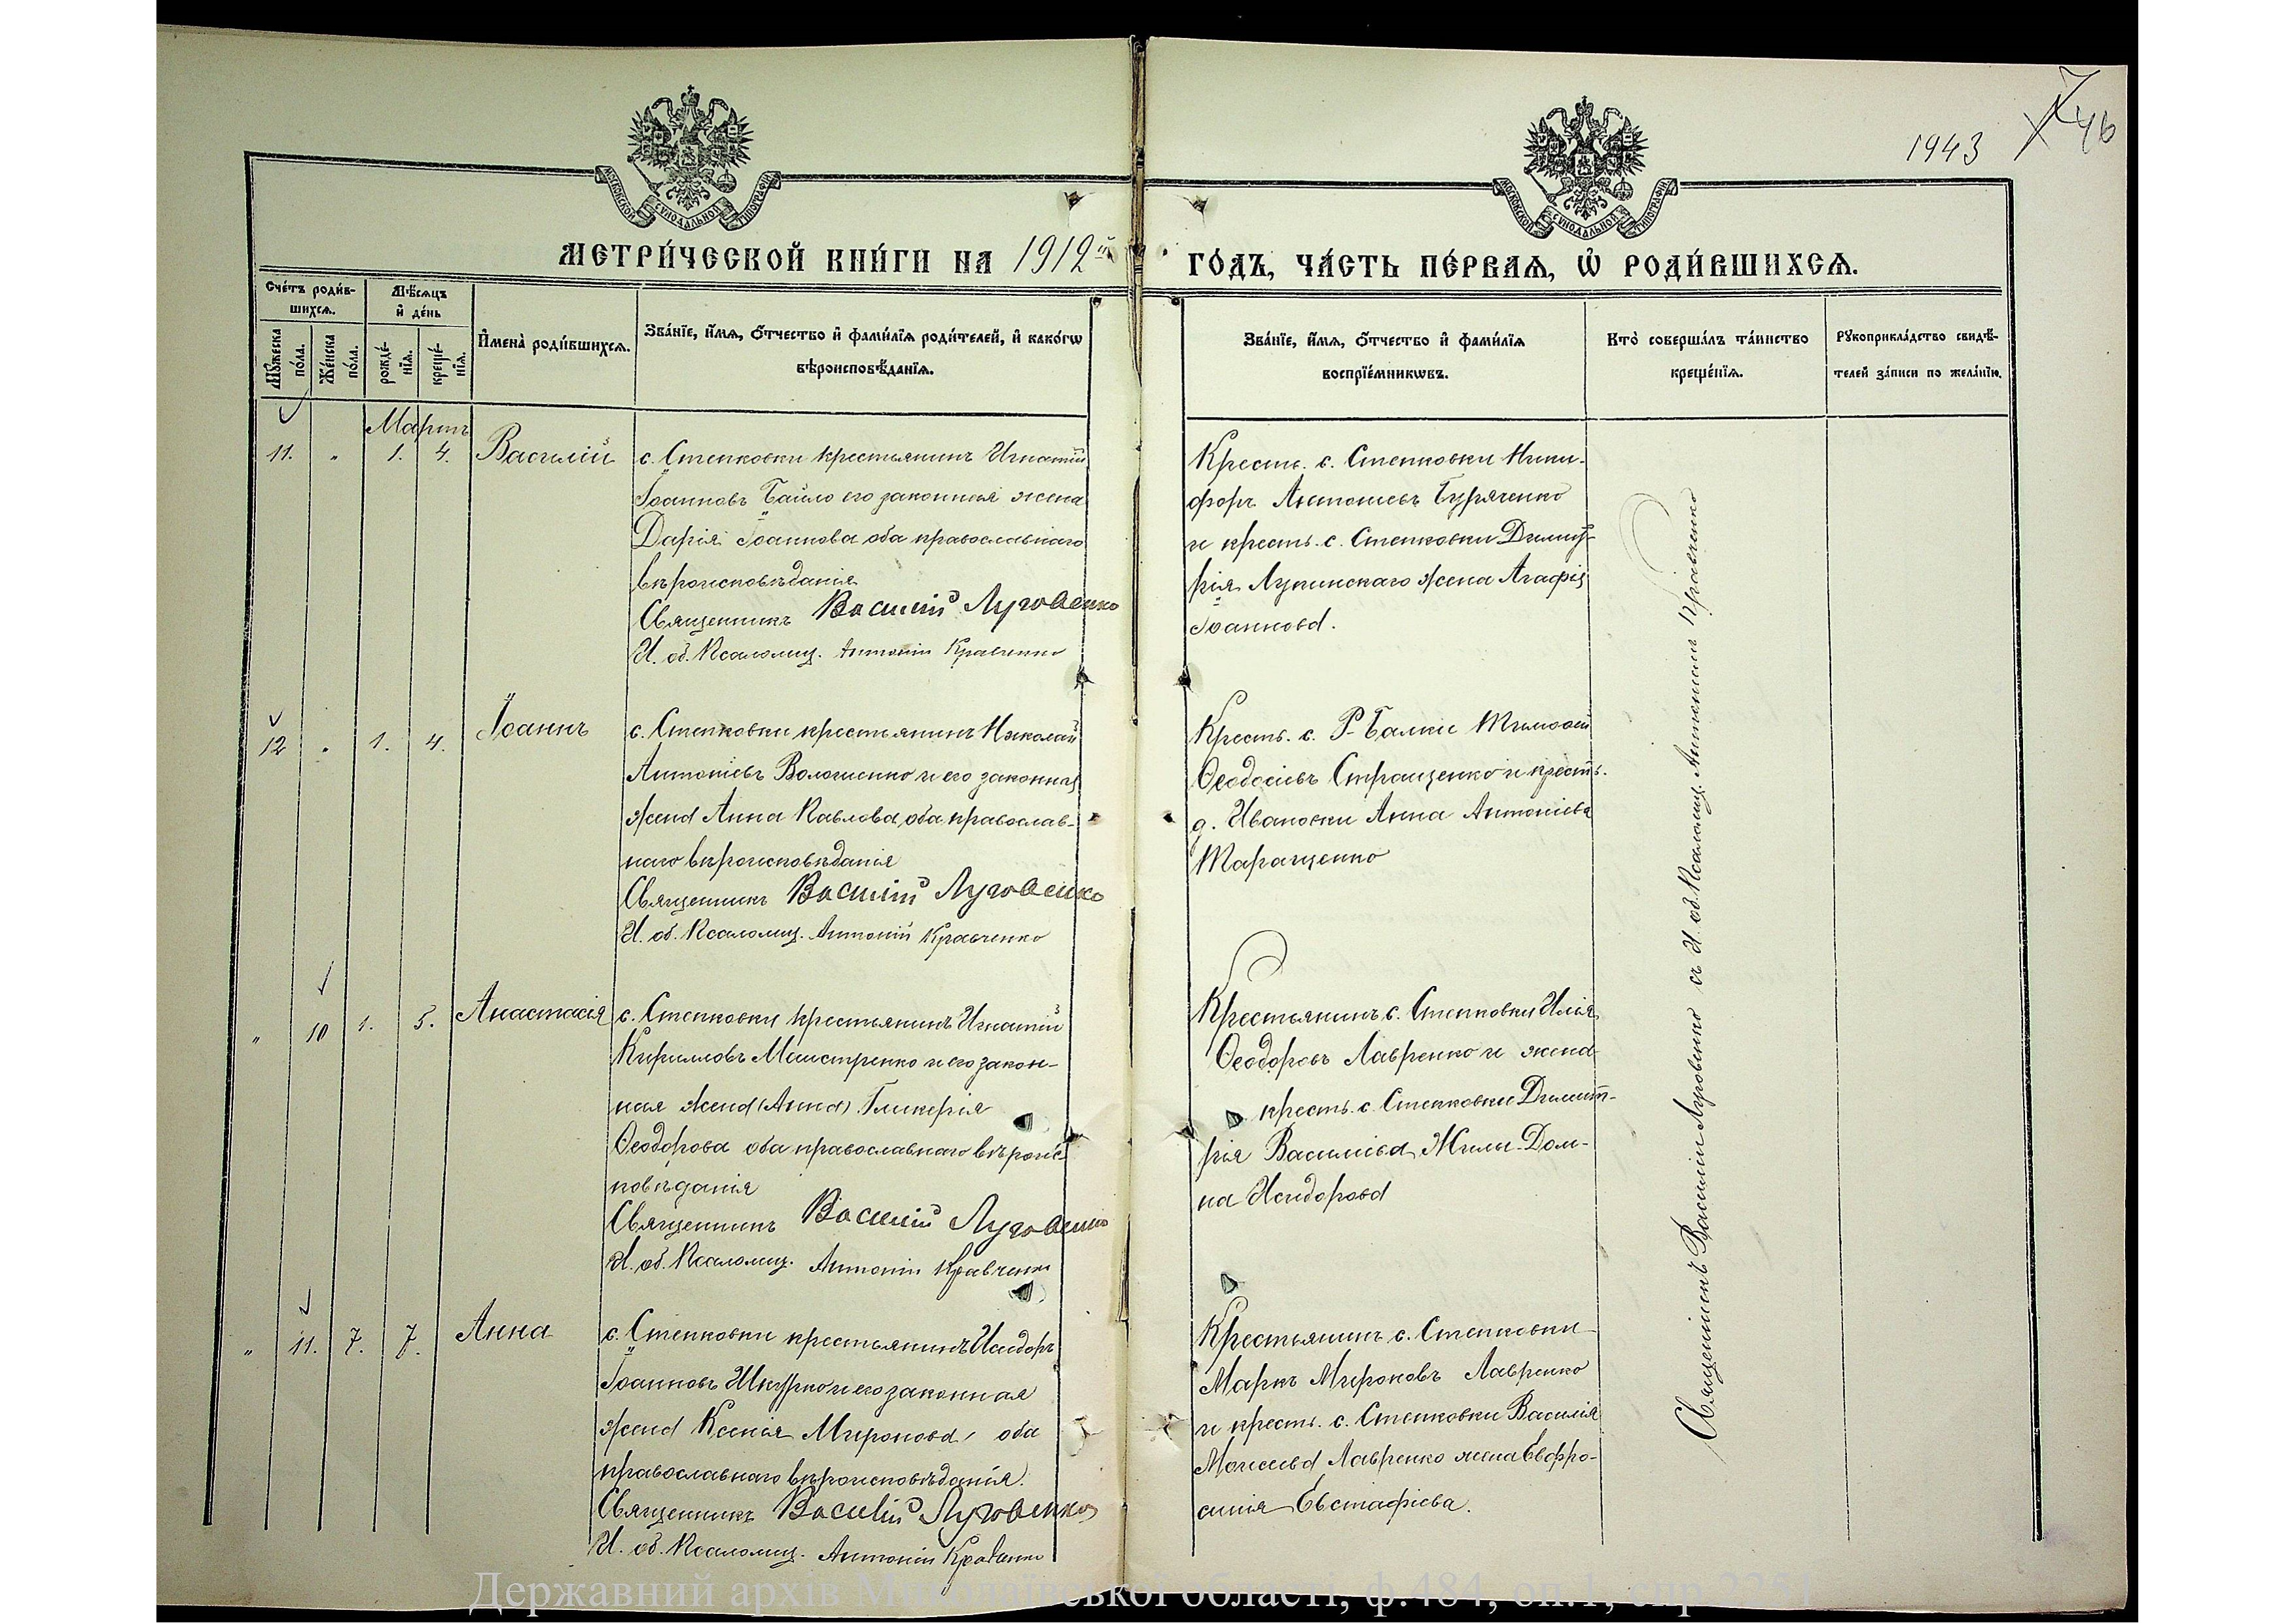 1943
46
МОСКОВСКОЙ СУНОДАЛЬНОЙ ТИПОГРАФІИ
МОСКОВСКОЙ СУНОДАЛЬНОЙ ТИПОГРАФІИ
МЕТРИ́ЧЕСКОЙ КНИ́ГИ НА 1912й
ГО́ДЪ, ЧА́СТЬ ПЕ́РВАѦ, Ѡ҆ РОДИ́ВШИХСѦ.
Сче́тъ роди́в-
шихсѧ.
Мѣ́сѧцъ
и҆ де́нь
Мꙋ́жеска
по́ла.
Же́нска
по́ла.
рожде́-
нїѧ.
креще́-
нїѧ.
И҆мена̀ роди́вшихсѧ.
Зва́нїе, и҆́мѧ, ѻ҆́тчество и҆ фами́лїѧ роди́телей, и҆ како́гѡ
вѣроисповѣ́данїѧ.
Зва́нїе, и҆́мѧ, ѻ҆́тчество и҆ фами́лїѧ
воспрїе́мникѡвъ.
Кто̀ соверша́лъ та́инство
креще́нїѧ.
Рꙋкоприкла́дство свидѣ́-
телей за́писи по жела́нїю.
Мартъ
11. " 1. 4. Василій
с. Степковки крестьянинъ Игнатій
Іоанновъ Байло его законная жена
Дарія Іоаннова оба православнаго
вѣроисповѣданія
Священникъ Василій Луговенко
И. об. Псаломщ. Антоній Кравченко
Крест. с. Степковки Ники-
форъ Антоніевъ Буряченко
и крест. с. Степковки Димит-
рія Лукинскаго жена Агафія
Іоаннова.
12 " 1. 4. Іоаннъ
с. Степковки крестьянинъ Николай
Антоніевъ Волошенко и его законная
жена Анна Павлова, оба православ-
наго вѣроисповѣданія
Священникъ Василій Луговенко
И. об. Псаломщ. Антоній Кравченко
Крест. с. Р-Балки Тимофей
Ѳеодосіевъ Стращенко и крест.
д. Ивановки Анна Антоніева
Таращенко
" 10 1. 5. Анастасія
с. Степковки крестьянинъ Игнатій
Кирилловъ Маистренко и его закон-
ная жена (Анна) Гликерія
Ѳеодорова оба православнаго вѣроис-
повѣданія
Священникъ Василій Луговенко
И. об. Псаломщ. Антоній Кравченко
Крестьянинъ с. Степковки Илія
Ѳеодоровъ Лавренко и жена
крест. с. Степковки Димит-
рія Василіева Жилы Дом-
на Исидорова
" 11. 7. 7. Анна
с. Степковки крестьянинъ Исидоръ
Іоанновъ Шкурко и его законная
жена Ксенія Миронова, оба
православнаго вѣроисповѣданія.
Священникъ Василій Луговенко
И. об. Псаломщ. Антоній Кравченко
Крестьянинъ с. Степковки
Маркъ Мироновъ Лавренко
и крест. с. Степковки Василія
Моисеева Лавренко жена Евфро-
синія Евстафіева.
Священникъ Василій Луговенко съ И. об. Псаломщ. Антоніемъ Кравченко
Державний архів Миколаївської області, ф.484, оп.1, спр.2251